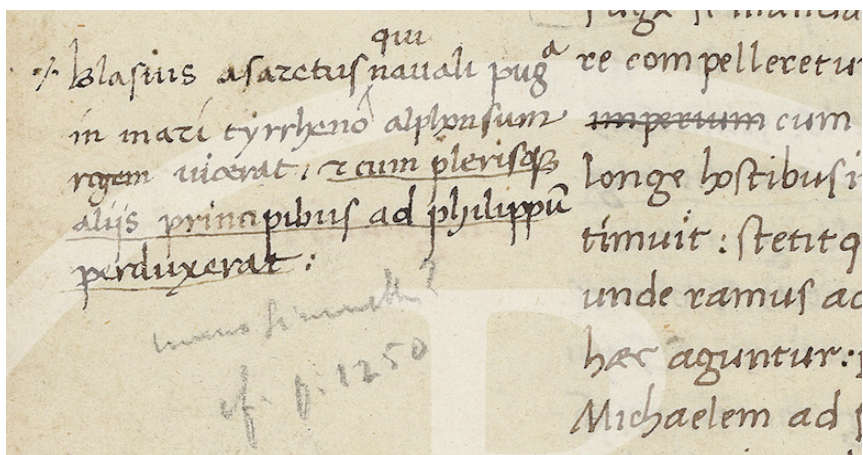 qui
⁒ blasius asaretus navali pugᵃ
in mari tyrrheno alphonsum
regem vicerat, & cum plerisq;
aliis principibus ad philippū
perduxerat:
cf. p. 1250
re compelleretu
imperium cum
longe hostibus i
timuit: stetit q
unde ramus ac
hæc aguntur:
Michaelem ad